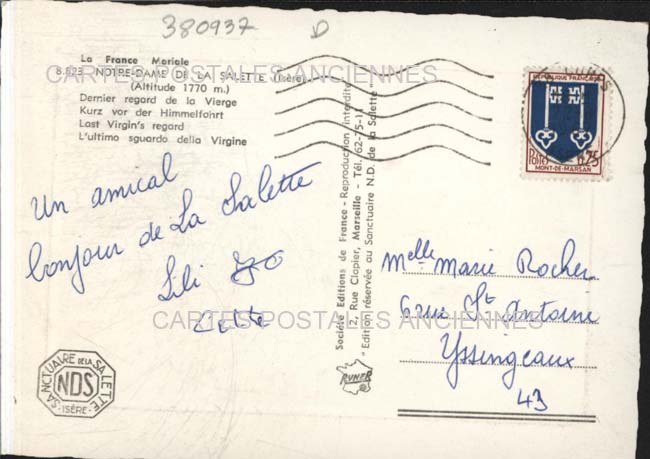 380937 D
La France Mariale
8.823 NOTRE-DAME DE LA SALETTE (Isère)
(Altitude 1770 m.)
Dernier regard de la Vierge
Kurz vor der Himmelfahrt
Last Virgin's regard
L'ultimo sguardo della Virgine
CARTES POSTALES ANCIENNES
Un amical
bonjour de La Salette
Lili
CARTES POSTALES ANCIENNES
SANCTUAIRE DE LA SALETTE
NDS
- ISÈRE -
Société Editions de France - Reproduction interdite
2, Rue Clapier, Marseille - Tél. 62-75-11
"Edition réservée au Sanctuaire N.D. de la Salette"
RÉPUBLIQUE FRANÇAISE
POSTES 0,75
MONT-DE-MARSAN
Melle Marie Rocher
6 rue St Antoine
Yssingeaux
43